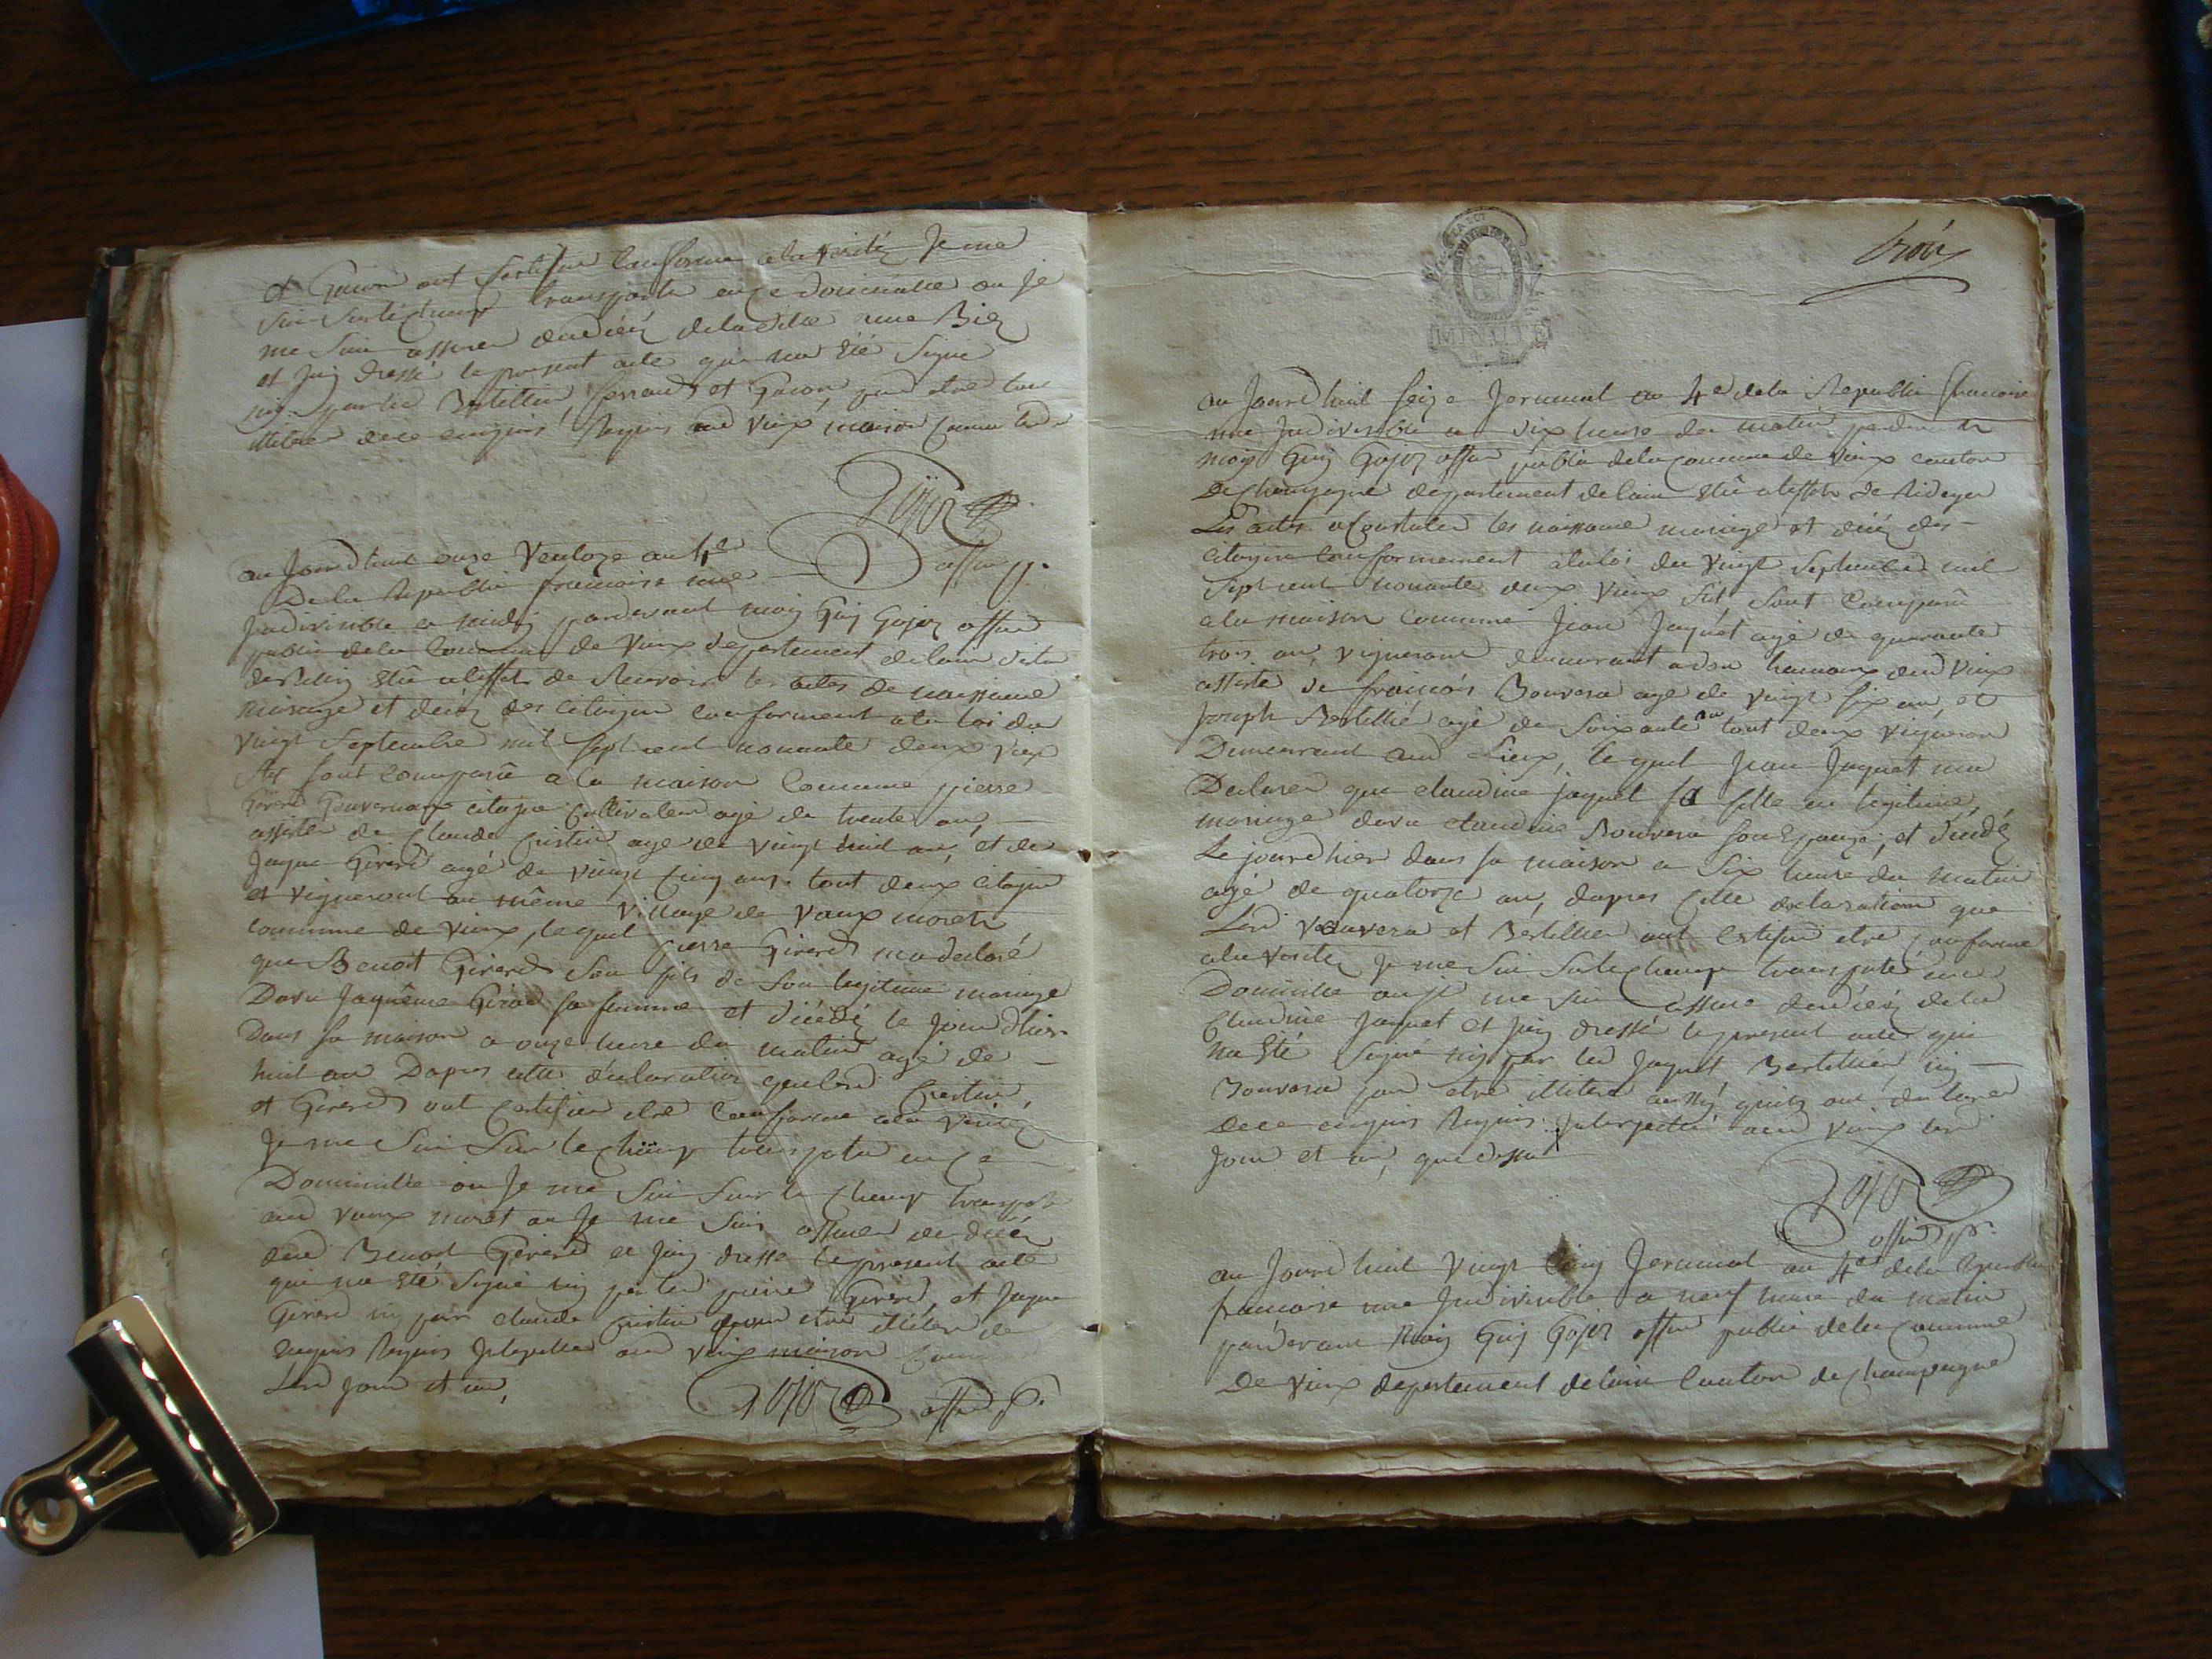 et Guion ont sertifier conforme a la verité Je me
sui sur le champ transporte en ce domicille ou Je
me suis assurer du décéz de la ditte anne Biez
et Jaij dressé le present acte qui na été signé
nij par led Bertillier ferrand et Guion pour etre tous
illitere de ce enquis Requis aud vieux maison commune led
Gojoz
offier p.
au Jourdhuit onze ventoze an 4e
De la Republi francoise une
Indivisible a midij pardevant moij Guij Gojoz offier
public de la commune de vieux departement de lain
de Belleij élû a leffet de Recevoir les actes de naissance
mariage et décéz des citoyen conforment a la loi du
vingt septembre mil sept cent nonante deux vieux
stil sont comparû a la maison commune pierre
Girerd citoyen cultivateur agé de trente an
assister de Claude Cristin age de vingt huit an, et de
Jaque Girerd agé de vingt cinq ans tout deux citoyen
et vigneront au même village de vaux morets
commune de vieux, lequel pierre Girerd ma declaré
que Benoit Girerd son fils de son legitime mariage
Davec Jaquême Girod sa femme et décédé le jour dhier
Dans sa maison a onze heure du matin agé de
huit an Dapres cette declaration que led Cristin
et Girerd ont certifier etre conforme a la verité
Je me sui sur le champ transpoter en ce
Domicille ou Je me sui sur le champ transport
aud vaux moret ou Je me suis assurer du décéz
dud Benoit Girerd et Jaij dressé le present acte
qui na été signé nij par led pierre Girerd, et Jaque
Girerd nij par claude Cristin pour etre illitere de
enquis Requis aud vieux maison commune
Led jour et an,
Gojoz offier p.
trois
MINUTE
au Jourdhuit seize Jerminal an 4e de la Republi francoise
une Indivisible a dix heure du matin pardevant
moij Guij Gojoz offier public de la commune de vieux canton
De champagne departement de lain élû a leffet de Rediger
Les actes a constater les naissance mariage et décéz des
citoyen conformement a la loi du vingt septembre mil
sept cent nonante deux vieux stil sont comparû
a la maison commune Jean Jaquet agé de quarante
trois an, vigneront demeurant a don hameau dud vieux
assisté de francois Bouvera agé de vingt six an, et
Joseph Bertillié agé de soixante an tout deux vigneron
Demeurant aud Lieux, le quel Jean Jaquet ma
Declarer que claudine jaquet sa fille en legitime
mariage davec claudine Bouvera son Epouze, et décédéz
Le jourdhier dans sa maison a six heure du matin
agé de quatorze an, dapres cette declaration que
Led Bouvera et Bertillier ont certifier etre conforme
a la verite Je me sui sur le champ transporté en ce
Domicille ou je me sui assuré du décéz de la
Claudine jaquet et Jaij dressé le present acte qui
na été signé nij par led Jaquet Bertillier, nij
Bouvera pour etre illitere ainsij quils ont declarer
de ce enquis Requis aud vieux led
Jour et an, que dessus
Gojoz
offier p.
au Jourdhuit vingt cinq Jerminal an 4e de la Republi
francoise une Indivisible a neuf heure du matin
pardevant Moij Guij Gojoz offier public de la commune
De vieux departement de lain canton de champagne